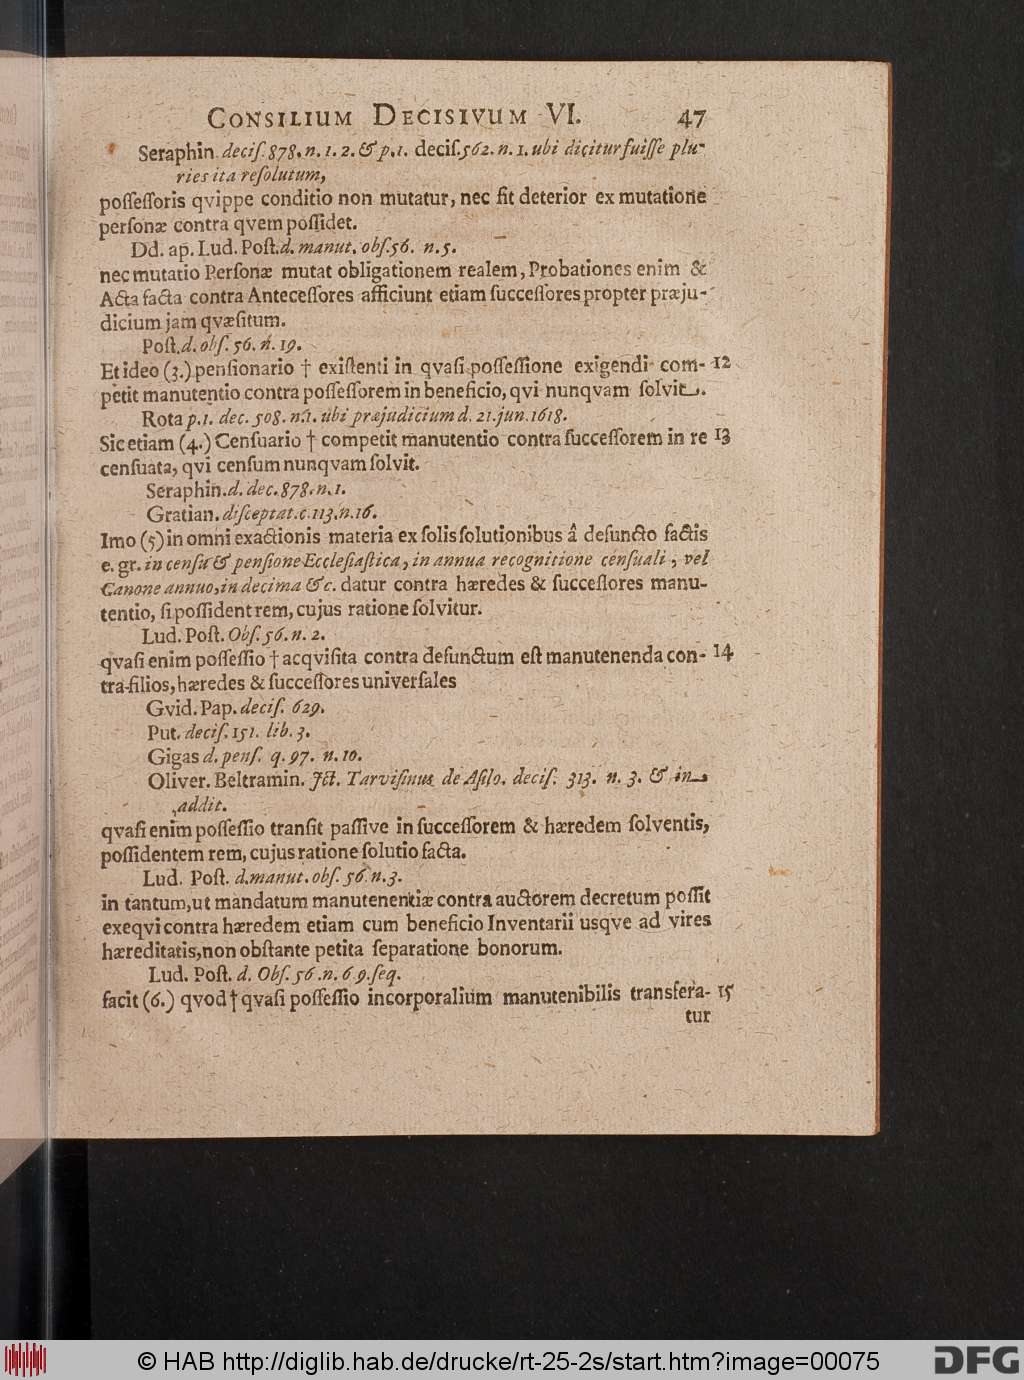 CONSILIUM DECISIVUM VI. 47
Seraphin. deciſ. 878. n. 1. 2. & p. 1. deciſ. 562. n. 1. ubi dicitur fuiſſe plu-
ries ita reſolutum,
poſſeſſoris qvippe conditio non mutatur, nec fit deterior ex mutatione
perſonæ contra qvem poſſidet.
Dd. ap. Lud. Poſt. d. manut. obſ. 56. n. 5.
nec mutatio Perſonæ mutat obligationem realem, Probationes enim &
Acta facta contra Anteceſſores afficiunt etiam ſucceſſores propter præju-
dicium jam qvæſitum.
Poſt. d. obſ. 56. n. 19.
Et ideo (3.) penſionario † exiſtenti in qvaſi poſſeſſione exigendi com- 12
petit manutentio contra poſſeſſorem in beneficio, qvi nunqvam ſolvit.
Rota p. 1. dec. 508. n. 1. ubi præjudicium d. 21. jun. 1618.
Sic etiam (4.) Cenſuario † competit manutentio contra ſucceſſorem in re 13
cenſuata, qvi cenſum nunqvam ſolvit.
Seraphin. d. dec. 878. n. 1.
Gratian. diſceptat. c. 113. n. 16.
Imo (5) in omni exactionis materia ex ſolis ſolutionibus â defuncto factis
e. gr. in cenſu & penſione Eccleſiaſtica, in annua recognitione cenſuali, vel
Canone annuo, in decima &c. datur contra hæredes & ſucceſſores manu-
tentio, ſi poſſident rem, cujus ratione ſolvitur.
Lud. Poſt. Obſ. 56. n. 2.
qvaſi enim poſſeſſio † acqviſita contra defunctum eſt manutenenda con- 14
tra filios, hæredes & ſucceſſores univerſales
Gvid. Pap. deciſ. 629.
Put. deciſ. 151. lib. 3.
Gigas d. penſ. q. 97. n. 10.
Oliver. Beltramin. JCt. Tarviſinus de Aſilo. deciſ. 313. n. 3. & in
addit.
qvaſi enim poſſeſſio tranſit paſſive in ſucceſſorem & hæredem ſolventis,
poſſidentem rem, cujus ratione ſolutio facta.
Lud. Poſt. d. manut. obſ. 56. n. 3.
in tantum, ut mandatum manutenentiæ contra auctorem decretum poſſit
exeqvi contra hæredem etiam cum beneficio Inventarii usqve ad vires
hæreditatis, non obſtante petita ſeparatione bonorum.
Lud. Poſt. d. Obſ. 56. n. 69. ſeq.
facit (6.) qvod † qvaſi poſſeſſio incorporalium manutenibilis transfera- 15
tur
© HAB http://diglib.hab.de/drucke/rt-25-2s/start.htm?image=00075
DFG